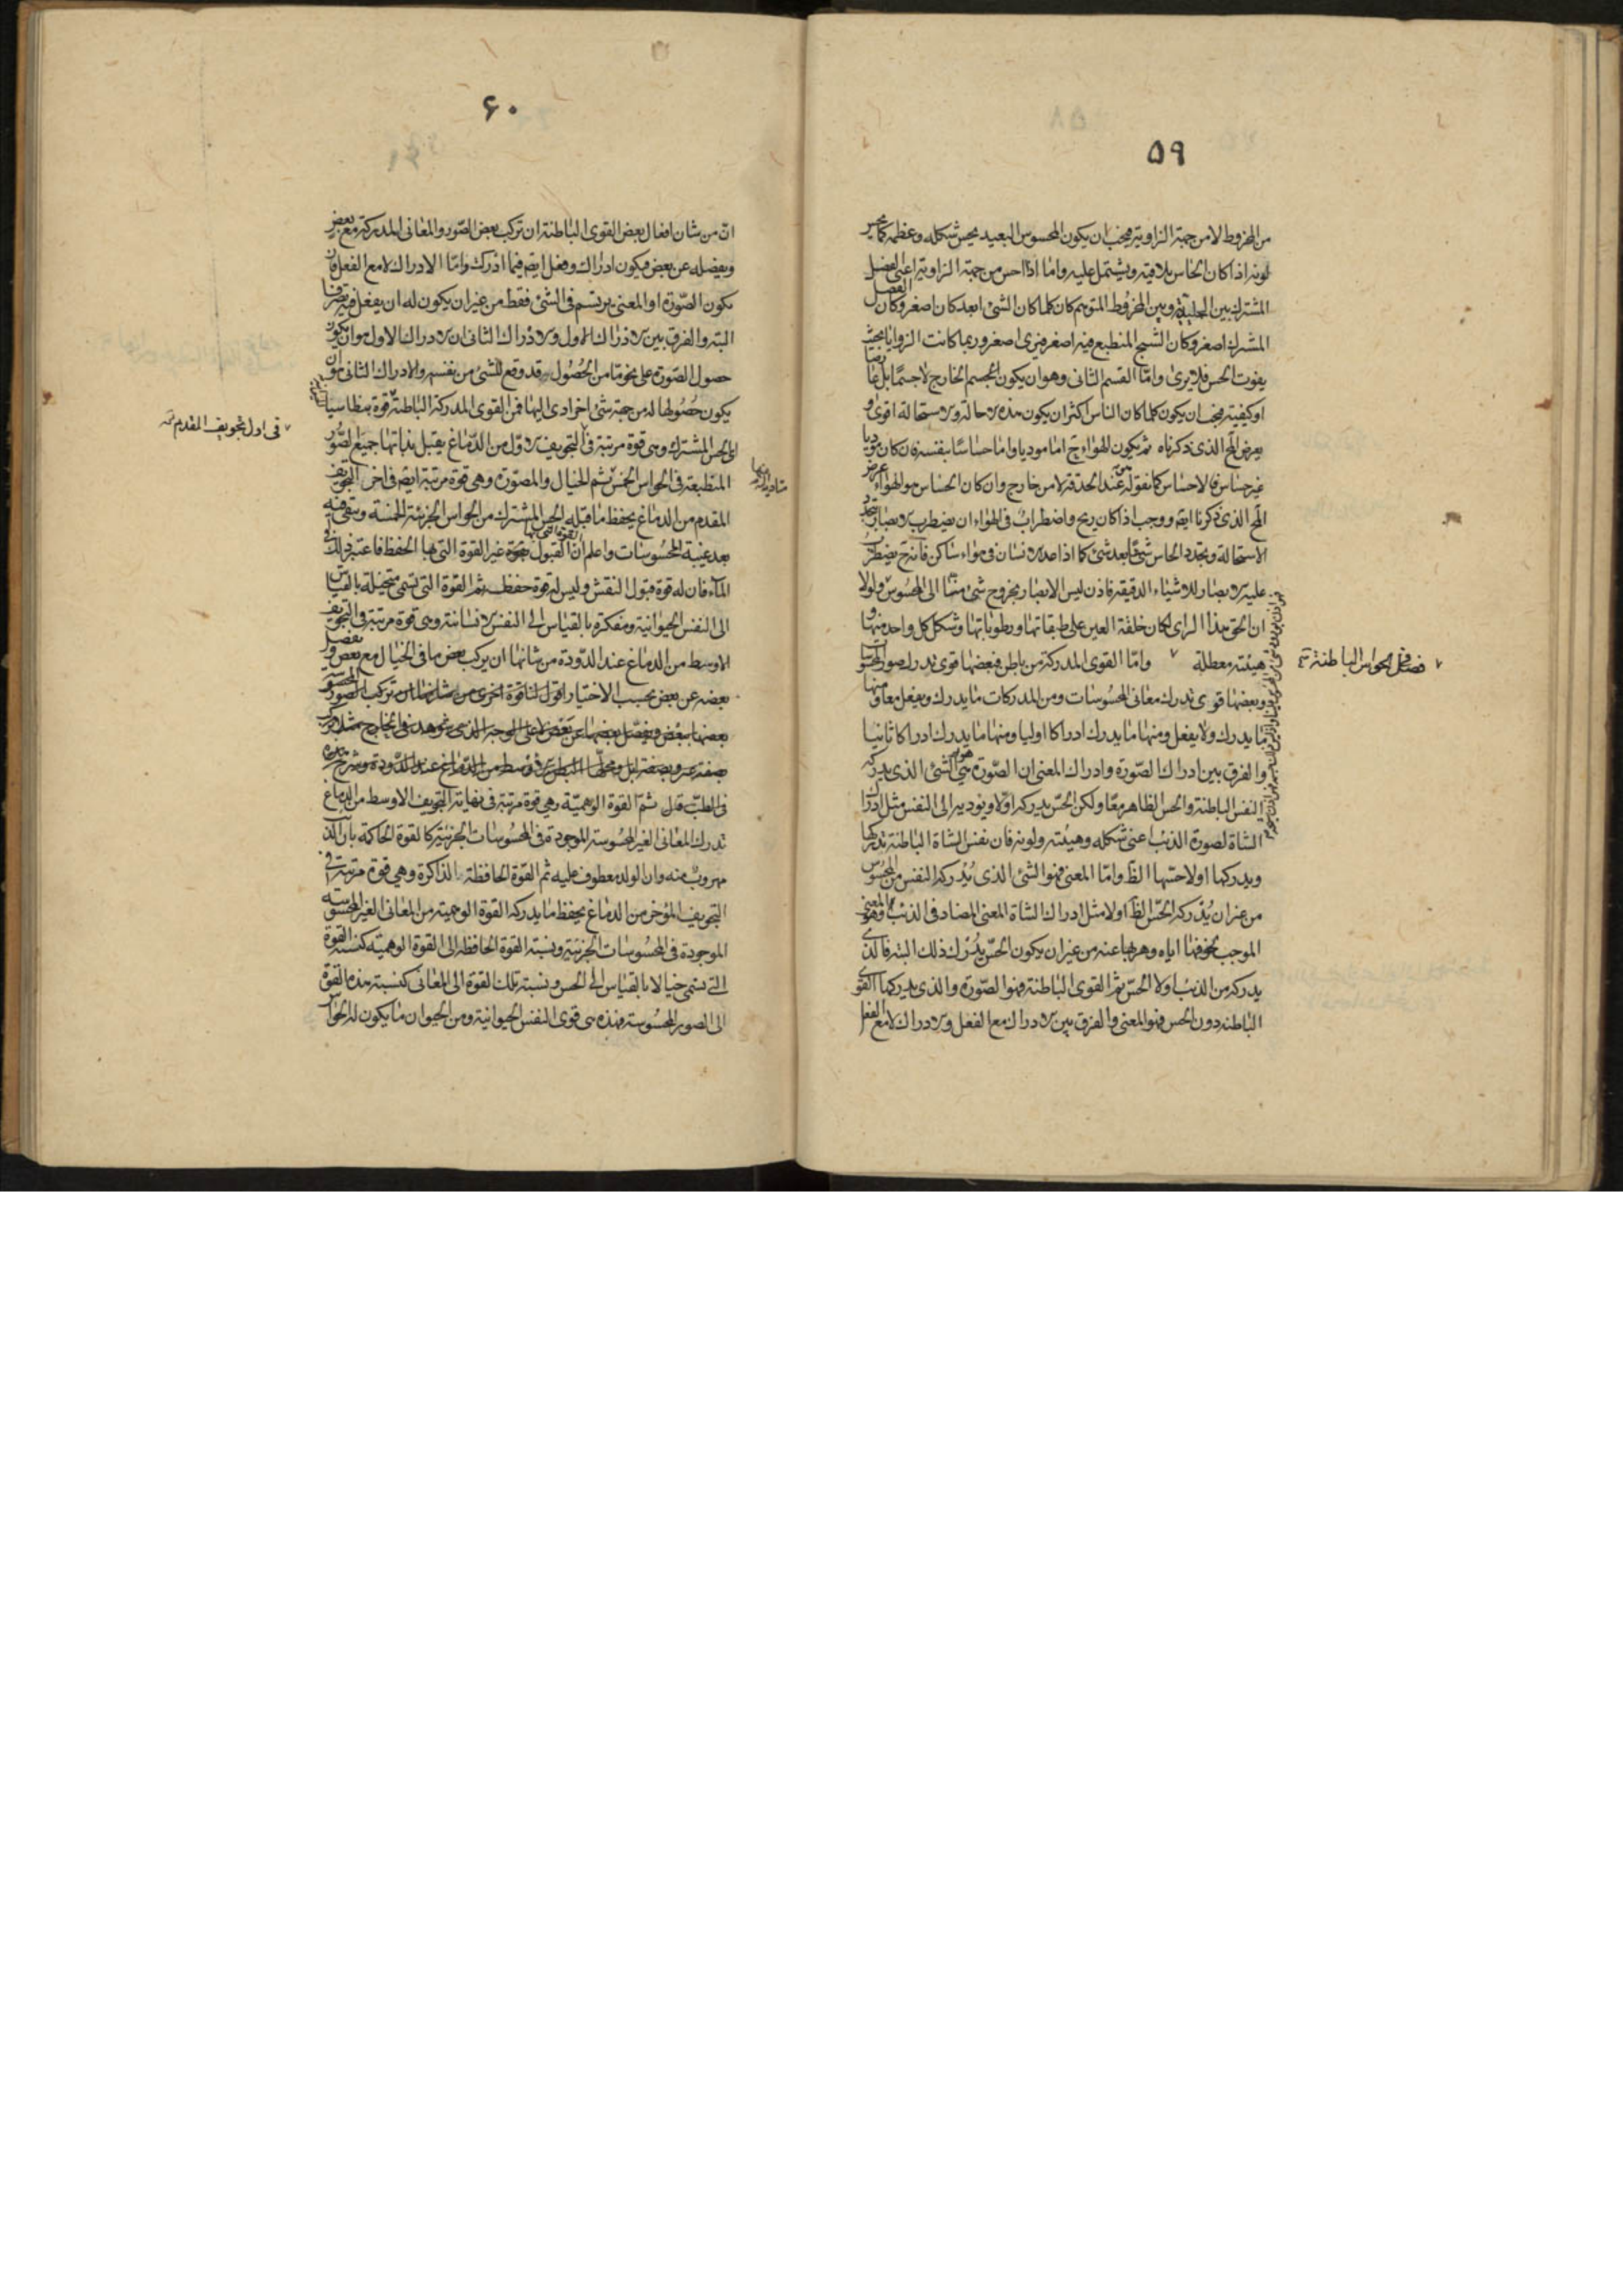 ٥٩
من المخروط لا من جهة الزاوية فيجب ان يكون المحسوس البعيد يحس شكله وعظمه كما يحس
لونه اذا كان الحاس يلاقيه ويشتمل عليه واما اذا احس من جهة الزاوية اعنى الفصل
المشترك بين الجليدية وبين المخروط المتوهم كان كلما كان الشئ ابعد كان اصغر وكان الفصل
المشترك اصغر وكان الشبح المنطبع فيه اصغر فيرى اصغر وربما كانت الزوايا بحيث
يفوت الحس فلا يرى واما القسم الثانى وهو ان يكون الجسم الخارج لا جسما بل عارضا
او كيفية فيجب ان يكون كلما كان الناس اكثر ان يكون هذه الاحالة والاستحالة اقوى و
يعرض المح الذى ذكرناه ثم يكون الهواء ح اما موديا واما حساسا بنفسه فان كان موديا
غير حساس فالاحساس كما نقوله من عند الحدقة لا من خارج وان كان الحساس هو الهواء عرض
المح الذى ذكرنا ايضم ووجب اذا كان ريح واضطراب فى الهواء ان يضطرب الابصار بتجدد
الاستحالة وتجدد الحاس شيئا بعد شئ كما اذا عدا الانسان فى هواء ساكن فانه ح يضطرب
عليه الابصار للاشياء الدقيقة فاذن ليس الابصار بخروج شئ منا الى المحسوس ولولا
ان الحق هذا الراى لكان خلقة العين على طبقاتها ورطوباتها وشكل كل واحد منها و
هيئته معطلة ٧ واما القوى المدركة من باطن فبعضها قوى تدرك صور المحسوسات
وبعضها قوى تدرك معانى المحسوسات ومن المدركات ما يدرك ويفعل معا ومنها
ما يدرك ولا يفعل ومنها ما يدرك ادراكا اوليا ومنها ما يدرك ادراكا ثانيا
والفرق بين ادراك الصورة وادراك المعنى ان الصورة هو الشئ الذى يدركه
النفس الباطنة والحس الظاهر معا ولكن الحس يدركه اولا ويوديه الى النفس مثل ادراك
الشاة لصورة الذئب اعنى شكله وهيئته ولونه فان نفس الشاة الباطنة تدركها
ويدركها اولا حسها الظ واما المعنى فهو الشئ الذى يدركه النفس من المحسوس
من غير ان يدركه الحس الظ اولا مثل ادراك الشاة المعنى المضاد فى الذئب وهو المعنى
الموجب لخوفها اياه وهربها عنه من غير ان يكون الحس يدرك ذلك البتة فالذى
يدركه من الذئب اولا الحس ثم القوى الباطنة فهو الصورة والذى يدركها القوى
الباطنة دون الحس فهو المعنى والفرق بين الادراك مع الفعل والادراك لا مع الفعل
٧ فصل فى الحواس الباطنة
٦٠
ان من شان افعال بعض القوى الباطنة ان تركب بعض الصور والمعانى المدركة مع بعض
ويفصله عن بعض فيكون ادراك وفعل ايضم فيما ادرك واما الادراك لا مع الفعل فان
يكون الصورة او المعنى يرتسم فى الشئ فقط من غير ان يكون له ان يفعل فيه تصرفا
البتة والفرق بين الادراك الاول والادراك الثانى ان الادراك الاول هو ان يكون
حصول الصورة على نحو ما من الحصول قد وقع للشئ من نفسه والادراك الثانى هو ان
يكون حصولها له من جهة شئ اخر ادى اليها فمن القوى المدركة الباطنة قوة بنطاسيا
اى الحس المشترك وهى قوة مرتبة فى التجويف الاول من الدماغ يقبل بذاتها جميع الصور
المنطبعة فى الحواس الخمس ثم الخيال والمصورة وهى قوة مرتبة ايضم فى اخر التجويف
المقدم من الدماغ يحفظ ما قبله الحس المشترك من الحواس الجزئية الخمسة وتبقى فيه
بعد غيبة المحسوسات واعلم ان القوة التى بها القبول غير القوة التى بها الحفظ فاعتبر ذلك فى
الماء فان له قوة قبول النقش وليس له قوة حفظه ثم القوة التى تسمى متخيلة بالقياس
الى النفس الحيوانية ومفكرة بالقياس الى النفس الانسانية وهى قوة مرتبة فى التجويف
الاوسط من الدماغ عند الدودة من شانها ان يركب بعض ما فى الخيال مع بعض ويفصل
بعضه عن بعض بحسب الاختيار اقول لنا قوة اخرى من شانها ان تركب الصور المحسوسة
بعضها ببعض وتفصل بعضها عن بعض لا على الوجه الذى شوهد فى الخارج
فى الطب قال ثم القوة الوهمية وهى قوة مرتبة فى نهاية التجويف الاوسط من الدماغ
تدرك المعانى الغير المحسوسة الموجودة فى المحسوسات الجزئية كالقوة الحاكمة بان الذئب
مهروب منه وان الولد معطوف عليه ثم القوة الحافظة الذاكرة وهى قوة مرتبة فى
التجويف المؤخر من الدماغ يحفظ ما يدركه القوة الوهمية من المعانى الغير المحسوسة
الموجودة فى المحسوسات الجزئية ونسبة القوة الحافظة الى القوة الوهمية كنسبة القوة
التى تسمى خيالا بالقياس الى الحس ونسبة تلك القوة الى المعانى كنسبة هذه القوة
الى الصور المحسوسة فهذه هى قوى النفس الحيوانية ومن الحيوان ما يكون له الحواس
متادية اليه منها
٧ فى اول تجويف المقدم